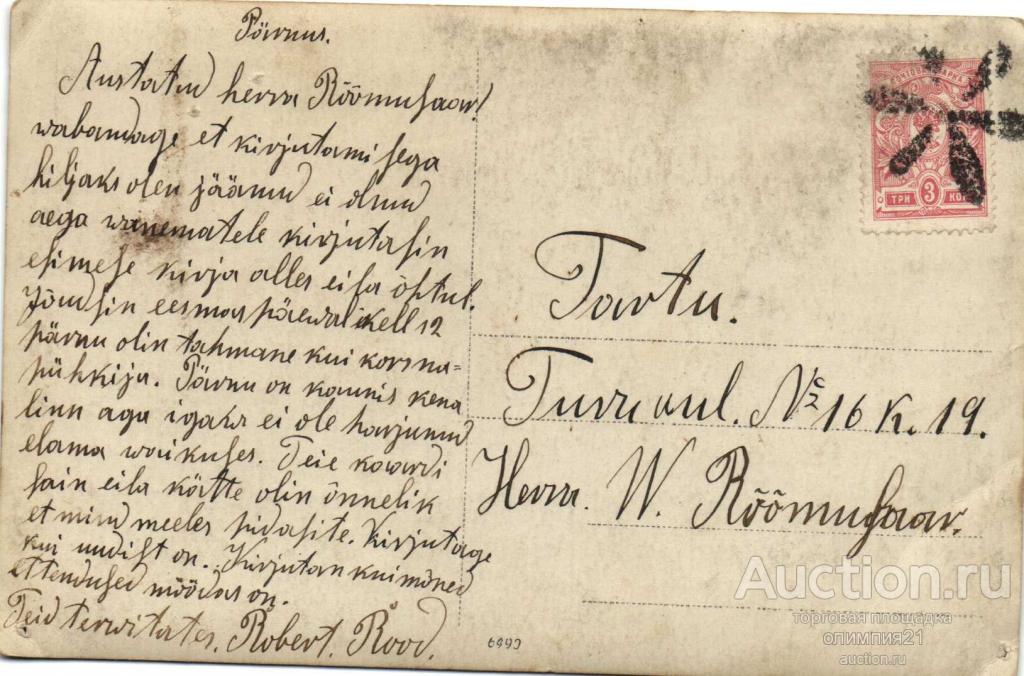 Pärnus.
Austatud herra Rõõmusaar!
wabandage et kirjutamisega
hiljaks olen jäänud ei olnud
aega wanematele kirjutasin
esimese kirja alles eila õhtul.
Jõudsin eesmaspäewal kell 12
pärnu olin tahmane kui korsna=
pühkija. Pärnu on kaunis kena
linn aga igaks ei ole harjunud
elama waikuses. Teie kaardi
sain eila kätte olin õnnelik
et mind meeles pidasite. Kirjutage
kui uudist on. Kirjutan kui mõned
ettendused möödas on.
Teid terwitates. Robert. Rood.
Tartu.
Turu uul. № 16 K. 19.
Herra. W. Rõõmusaar.
МАРКА
ТРИ 3 КОП
6993
Auction.ru
торговая площадка
олимпия21
auction.ru